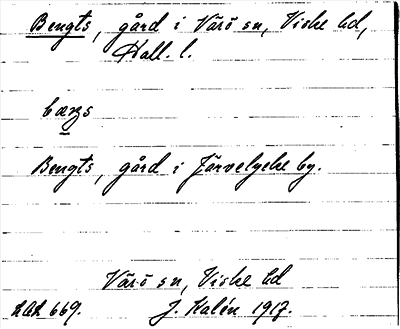 Bengts, gård i Värö sn, Viske hd,
Hall. l.
bæŋs
Bengts, gård i Järvelycke by.
Värö sn, Viske hd
LAL 669. J. Kalén 1917.